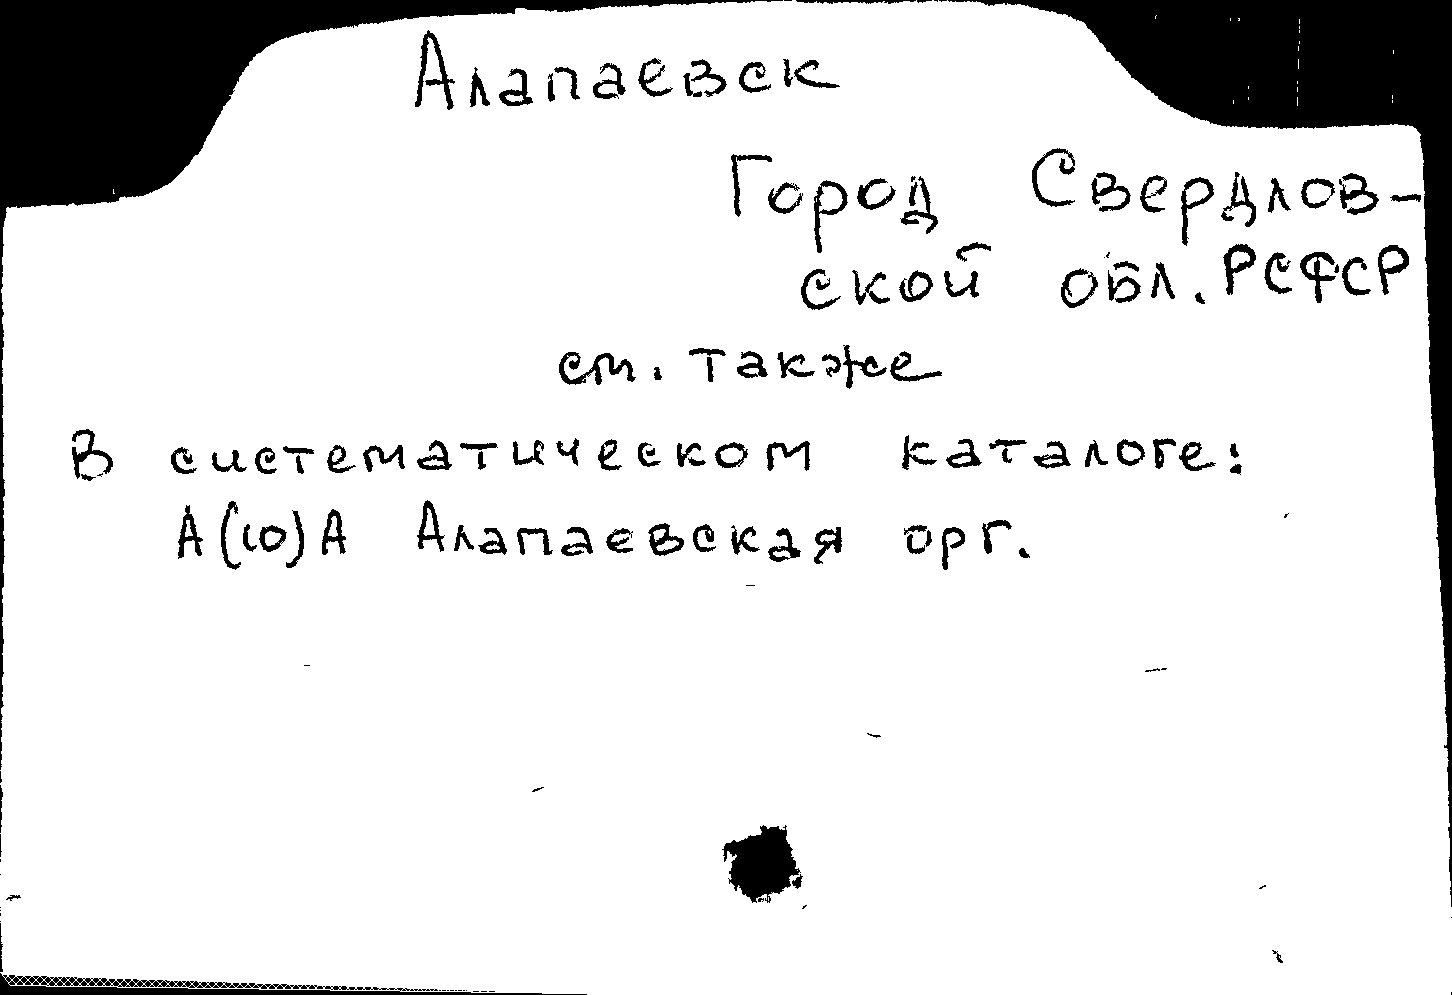 Алапаевск
Город Свердлов-
ской обл. РСФСР
см. также
В систематическом каталоге:
А(10)А Алапаевская орг.